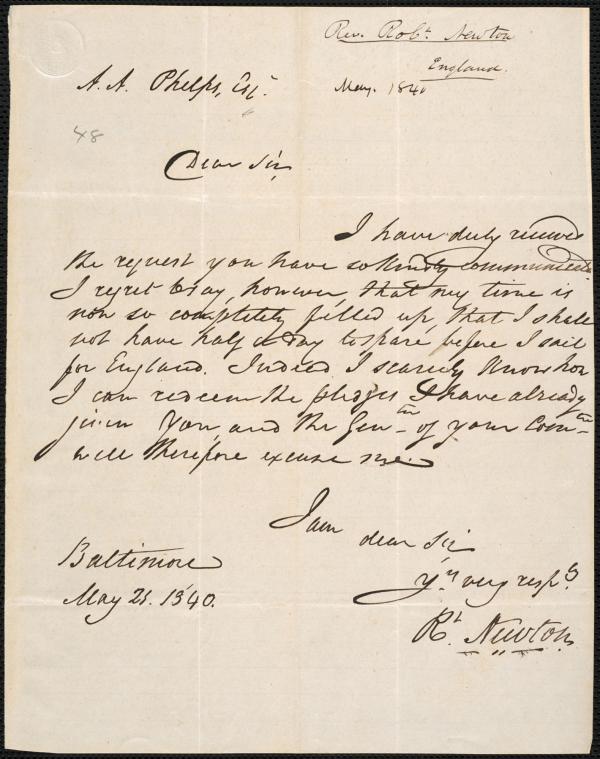 Rev. Robt. Newton
England.
May. 1840
A. A. Phelps, Esq.
48
Dear Sir,
I have duly received
the request you have so kindly communicated.
I regret to say, however, that my time is
now so completely filled up, that I shall
not have half a day to spare before I sail
for England. Indeed I scarcely know how
I can redeem the pledges I have already
given. You, and the Gentn. of your Comtee
will therefore excuse me.
I am
dear Sir
Yrs. very respy.
Rt. Newton
Baltimore
May 21. 1840.